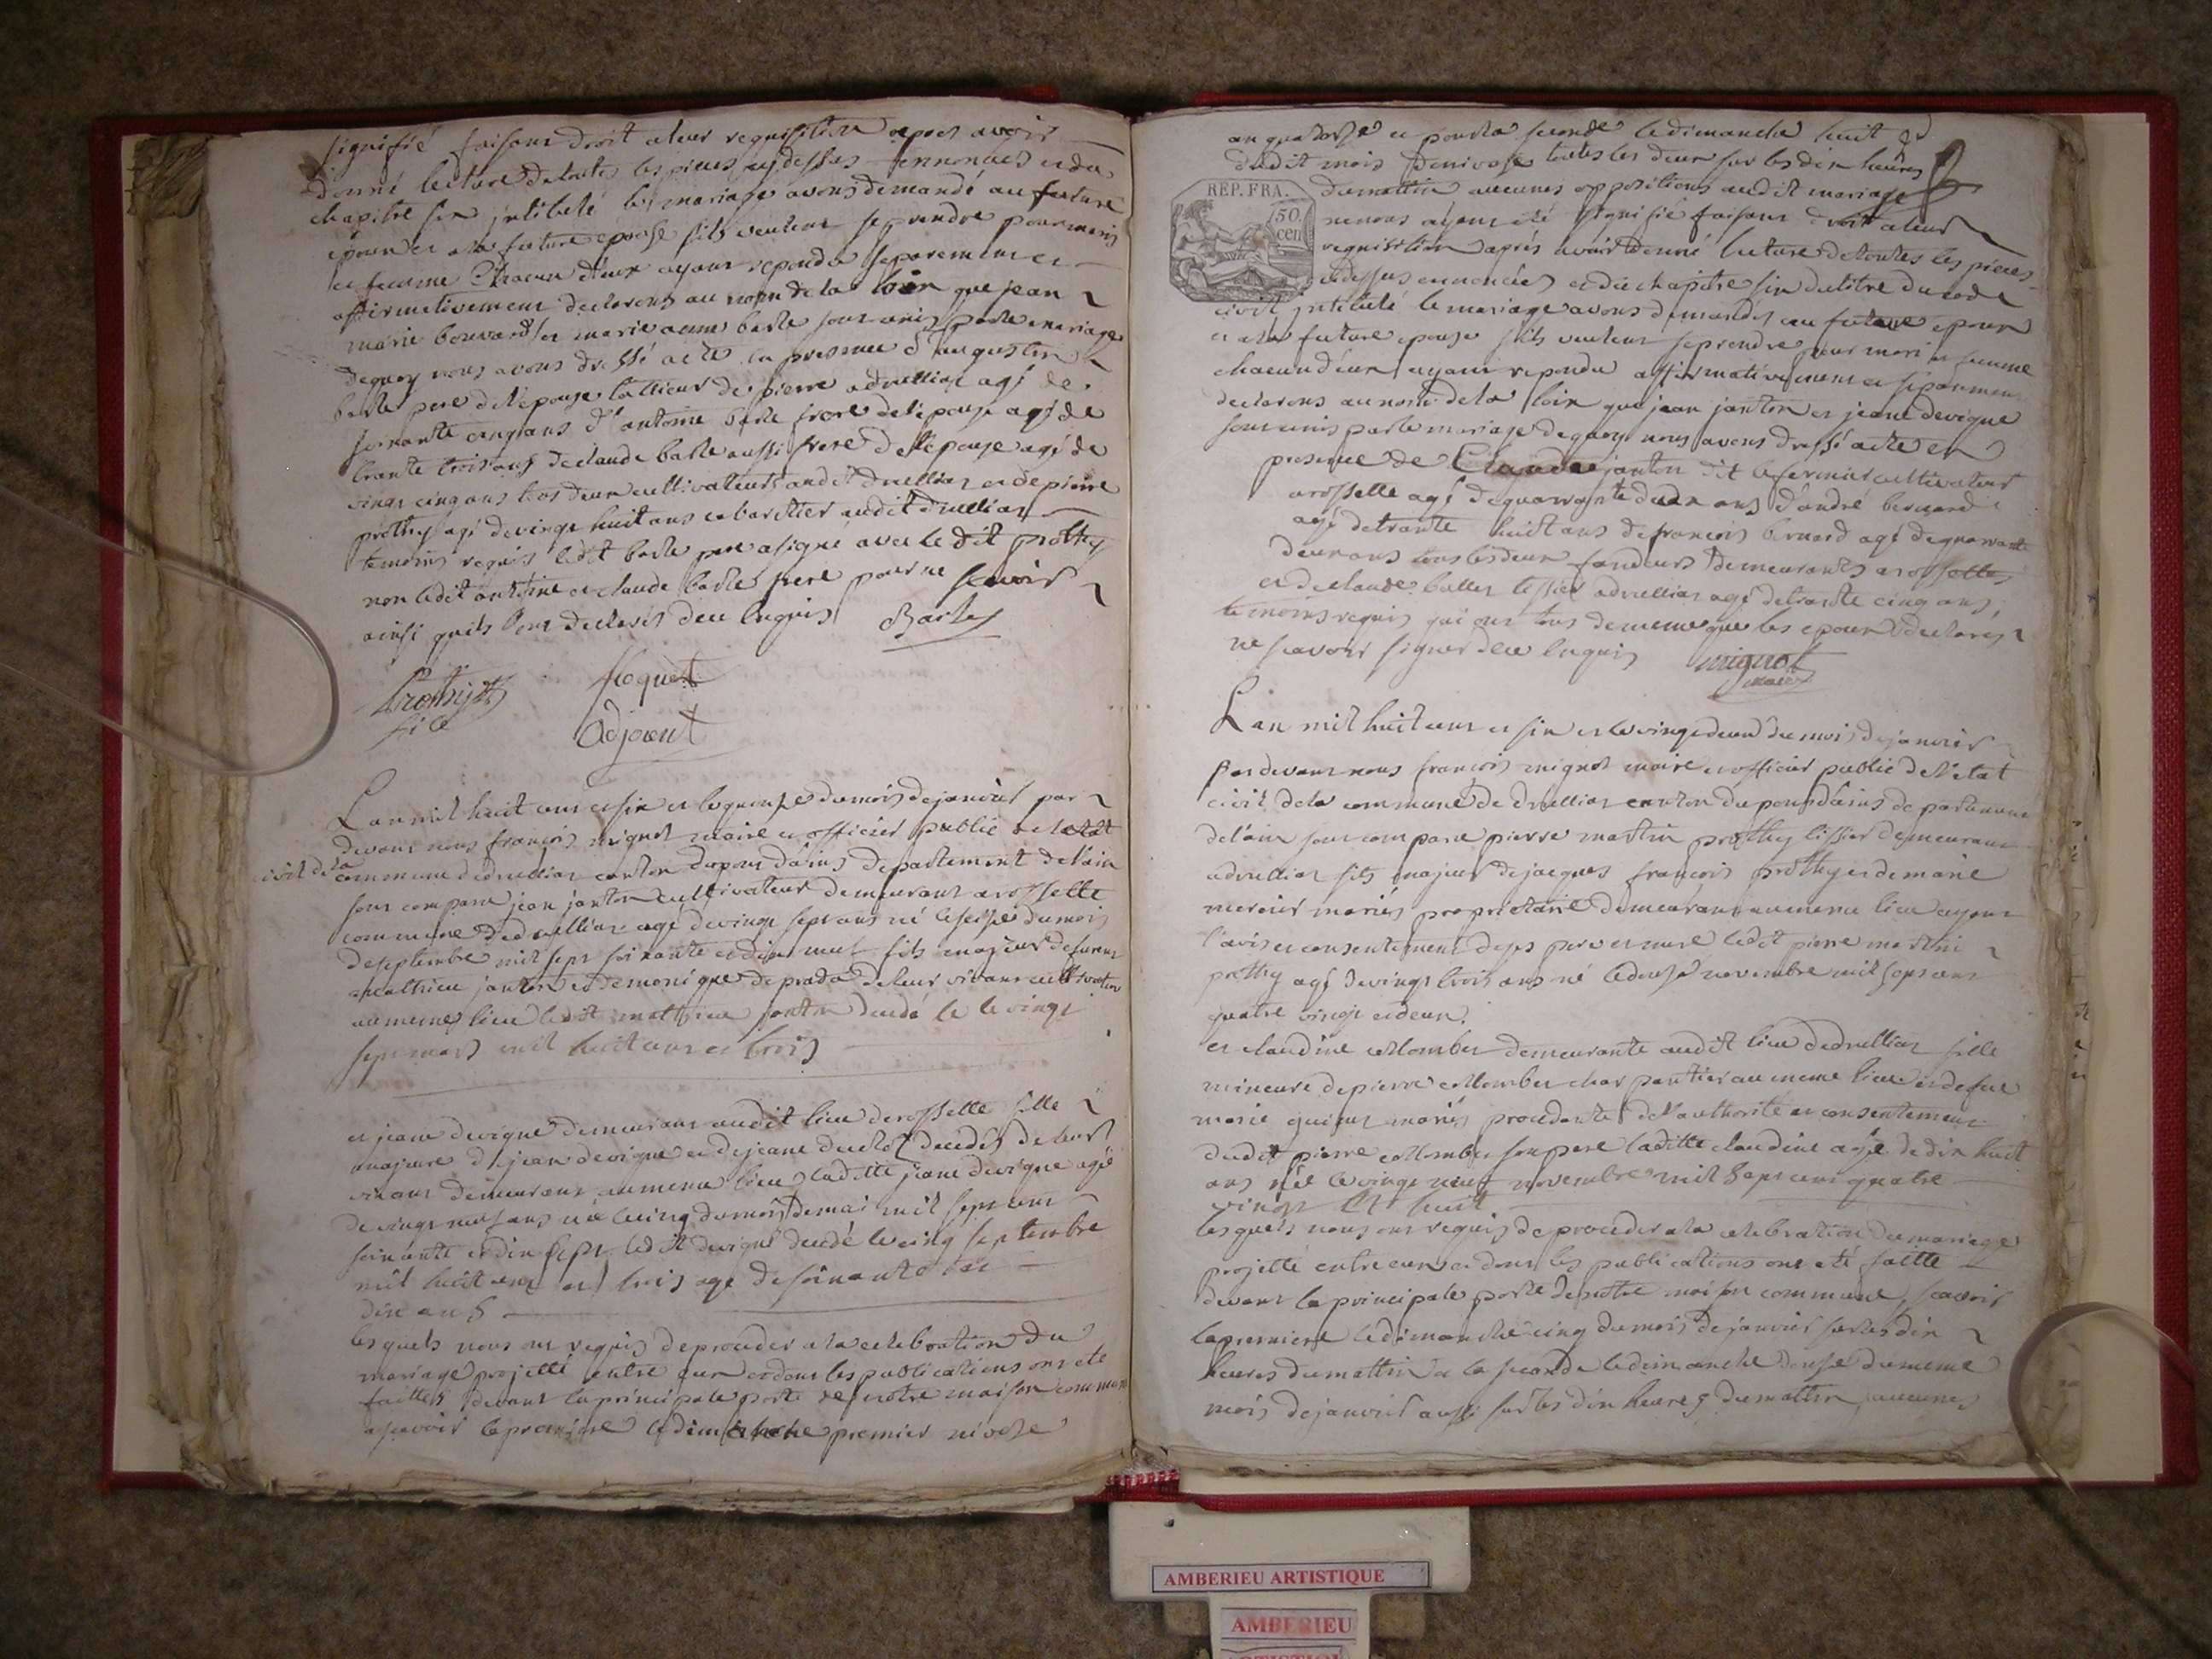 signifié faisant droit a leur requisition apres avoir
donné lecture de toutes les pieces cy dessus ennoncés et du
chapitre six jntibulé le mariage avons demandé au future
epoux et a la future epouse sils veulent se prendre pour mari
et femme Chacun d'eux ayant repondu separement et
affirmativement declarons au nom de la loix que jean
marie bouvard et marie anne basle sont unis par le mariage
de quoy nous avons dressé acte en presence d'augustin
basle pere de l'epouse tallieur de pierre a druilliat agé de
soixante cinq ans d'antoine basle frere de l'epouse agé de
trante trois ans de claude basle aussi frere de l'epouse agé de
vingt cinq ans tous deux cultivateurs audit druilliat et de pierre
prothy agé de vingt huit ans cabaretier audit druilliat
temoins requis ledit basle pere a signé avec le dit prothy
non ledit antoine et claude basle frere pour ne scavoir
ainsi quils l'ont declarés deu enquis Basle
Prothy fils
floquet
Adjoint
L'an mil huit cent et six et le quinze du mois de janvier par
devant nous françois mignot maire et officier public de l'etat
civil de la commune de druilliat canton du pont dains departement de l'ain
sont comparu jean janton cultivateur demeurant a rosselle
commune de druilliat agé de vingt sept ans né le seize du mois
de septembre mil sept soixante et dix neuf fils majeur de furent
mathieu janton et de monique de prada de leur vivant cultivateur
au meme lieu ledit mathieu janton decedé le le vingt
sept mars mil huit cent et trois
et jeane devigne demeurant audit lieu de rosselle fille
majeure d jean devigne et de jeane duclot decedés de leur
vivant demeurant au meme lieu laditte jeane devigne agée
de vingt neuf ans née le cinq du mois de mai mil sept cent
soixante et dix sept ledit devigne decedé le cinq septembre
mil huit cent et trois agé de soixante et
dix ans
lesquels nous ont requis de proceder a la celebration du
mariage projetté entre eux et dont les publications ont eté
faittes devant la principale porte de notre maison commune
a scavoir la premiere le dimanche premier nivose
an quatorze et pour la seconde le dimanche huit
dudit mois de nivose toutes les deux sur les dix heures
REP. FRA.
50.
cen
du mattin aucunes oppositions audit mariage
ne nous ayant eté signifié faisant droit a leur
requisition après avoir donné lecture de toutes les pieces
cy dessus ennoncées et du chapitre six du titre du code
civil jntibulé le mariage avons demandés au future epoux
et a la future epouse sils veulent se prendre pour mari et femme
chacun d'eux ayant repondu affirmativement et separement
declarons au nom de la loix que jean janton et jeane devigne
sont unis par le mariage de quoy nous avons dressé acte en
presence de Claude janton dit le fermier cultivateur
a rosselle agé de quarante deux ans d'andré bernard
agé de trante huit ans de françois bernard agé de quarante
deux ans tous les deux fandeurs demeurants a rosselle
et de claude bullet tissier a druilliat agé de trante cinq ans,
temoins requis qui ont tous de meme que les epoux declarés
ne scavoir signer deu enquis mignot
maire
L'an mil huit cent et six et le vingt deux du mois de janvier
par devant nous françois mignot maire et officier public de l'etat
civil de la commune de druilliat canton du pont dains departement
de l'ain sont comparu pierre martin prothy tissier demeurant
a druilliat fils majeur de jacques françois prothy et de marie
mercier mariés proprietaire demeurant au meme lieu ayant
l'avis et consentement de ses pere et mere ledit pierre martin
prothy agé de vingt trois ans né le douze novembre mil sept cent
quatre vingt et deux.
et claudine collombet demeurante audit lieu de druilliat fille
mineure de pierre collombet charpantier au meme lieu et de fue
marie guinet mariés procedante de l'authorité et consentement
dudit pierre collombet son pere laditte claudine agée de dix huit
ans née le vingt neuf novembre mil sept cent quatre
vingt et huit
lesquels nous ont requis de proceder a la celebration du mariage
projetté entre eux et dont les publications ont eté faitte
devant la principale porte de notre maison commune, scavoir
la premiere le dimanche cinq du mois de janvier sur les dix
heures du mattin et la seconde le dimanche douze du meme
mois de janvier aussi sur les dix heures du mattin, aucunes
AMBERIEU ARTISTIQUE
AMBERIEU